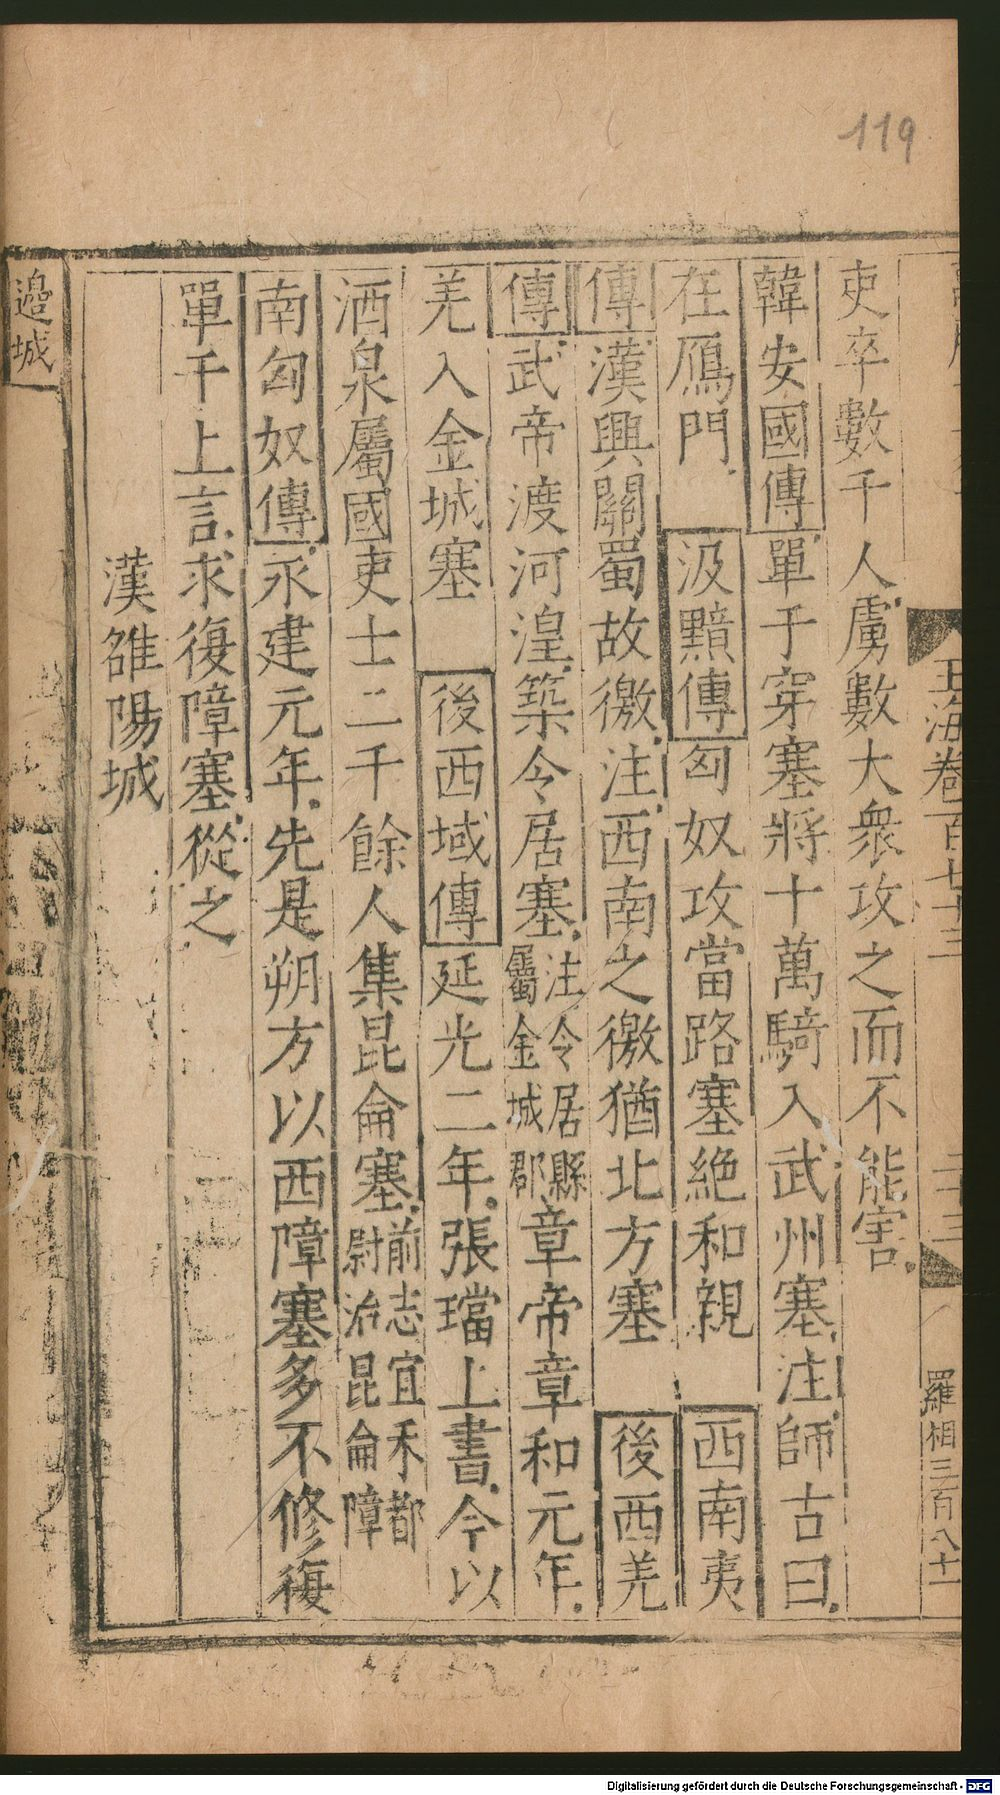 119
玉海卷一百七十三
二十三
羅相三百八十一
吏卒數千人虜數大衆攻之而不能害
韓安國傳單于穿塞將十萬騎入武州塞注師古曰
在鴈門 汲黯傳匈奴攻當路塞絕和親 西南夷
傳漢興關蜀故徼注西南之徼猶北方塞 後西羌
傳武帝渡河湟築令居塞注令居縣屬金城郡章帝章和元年
羌入金城塞 後西域傳延光二年張璫上書今以
酒泉屬國吏士二千餘人集昆侖塞前志宜禾都尉治昆侖障
南匈奴傳永建元年先是朔方以西障塞多不修復
單于上言求復障塞從之
漢雒陽城
邊城
Digitalisierung gefördert durch die Deutsche Forschungsgemeinschaft - DFG